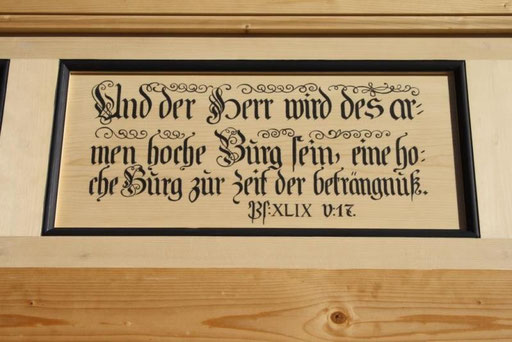 Und der Herr wird des ar=
men hoche Burg sein, eine ho=
che Burg zur Zeit der beträngnuß.
Ps:XLIX V:17.